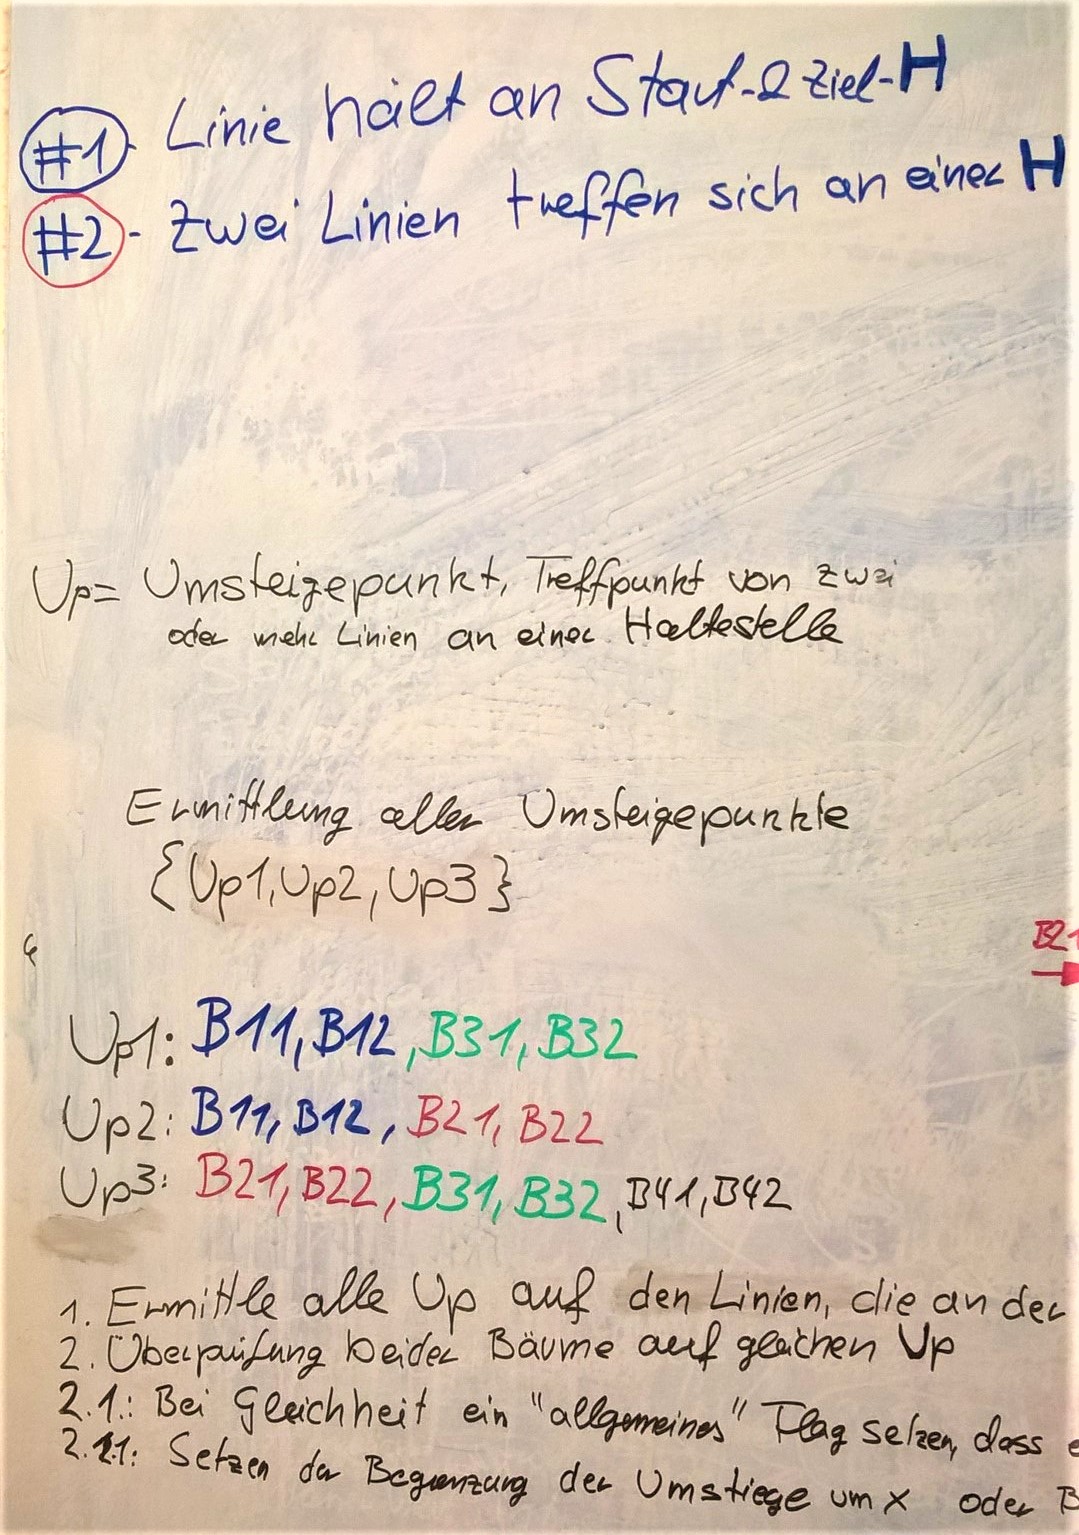 #1 - Linie hält an Start-& Ziel-H
#2 - Zwei Linien treffen sich an einer H
Up= Umsteigepunkt, Treffpunkt von zwei
oder mehr Linien an einer Haltestelle
Ermittlung aller Umsteigepunkte
{Up1, Up2, Up3}
B21
Up1: B11, B12, B31, B32
Up2: B11, B12, B21, B22
Up3: B21, B22, B31, B32, B41, B42
1. Ermittle alle Up auf den Linien, die an der
2. Überprüfung beider Bäume auf gleichen Up
2.1.: Bei Gleichheit ein "allgemeines" Flag setzen, dass e
2.1.1: Setzen der Begrenzung der Umstiege um x oder B